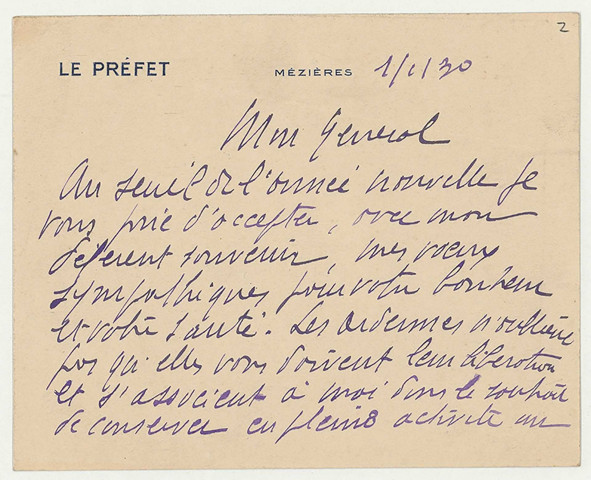 2
LE PRÉFET
MÉZIÈRES 1/1/30
Mon General
Au seuil de l'année nouvelle je
vous prie d'accepter, avec mon
déférent souvenir, mes vœux
sympathiques pour votre bonheur
et votre santé. Les Ardennes n'oublient
pas qu'elles vous doivent leur libération
et s'associent à moi dans le souhait
de conserver en pleine activité un